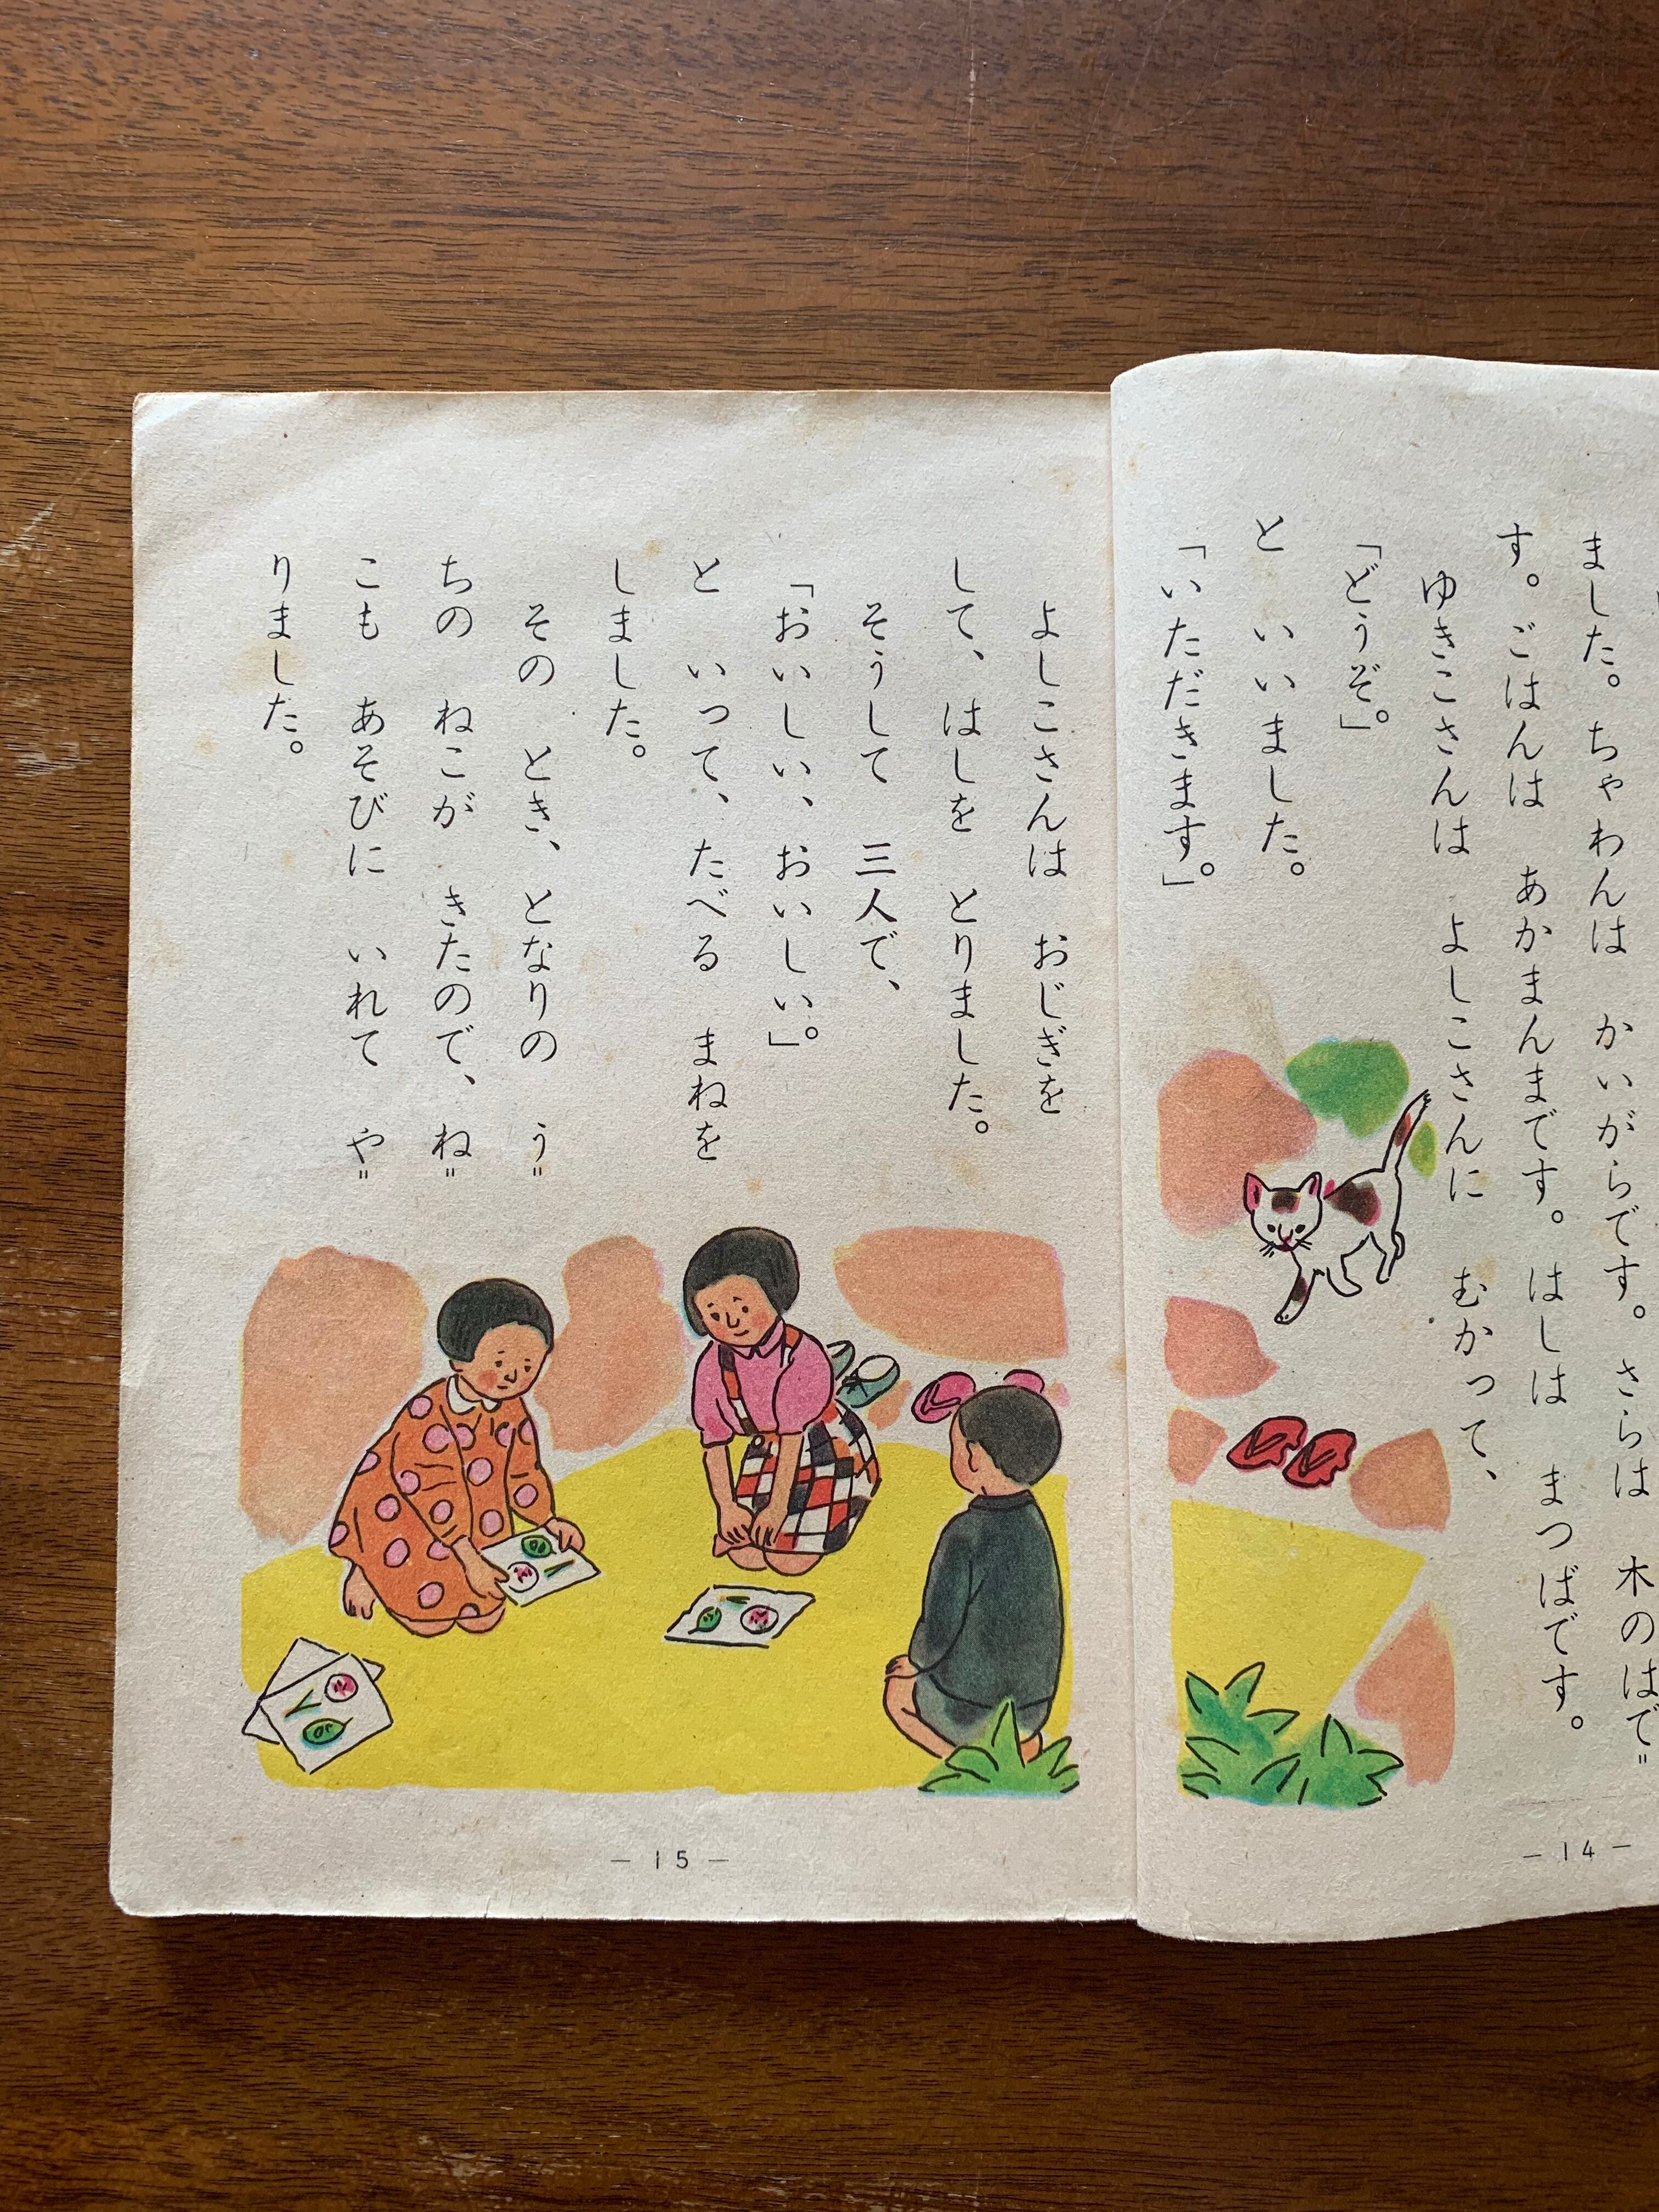 ました。ちゃわんは かいがらです。さらは 木のはで〃
す。ごはんは あかまんまです。はしは まつばです。
ゆきこさんは よしこさんに むかって、
「どうぞ。」
と いいました。
「いただきます。」
— 14 —
よしこさんは おじぎを
して、はしを とりました。
そうして 三人で、
「おいしい、おいしい。」
と いって、たべる まねを
しました。
その とき、となりの う〃
ちの ねこが きたので、ね〃
こも あそびに いれて や〃
りました。
— 15 —